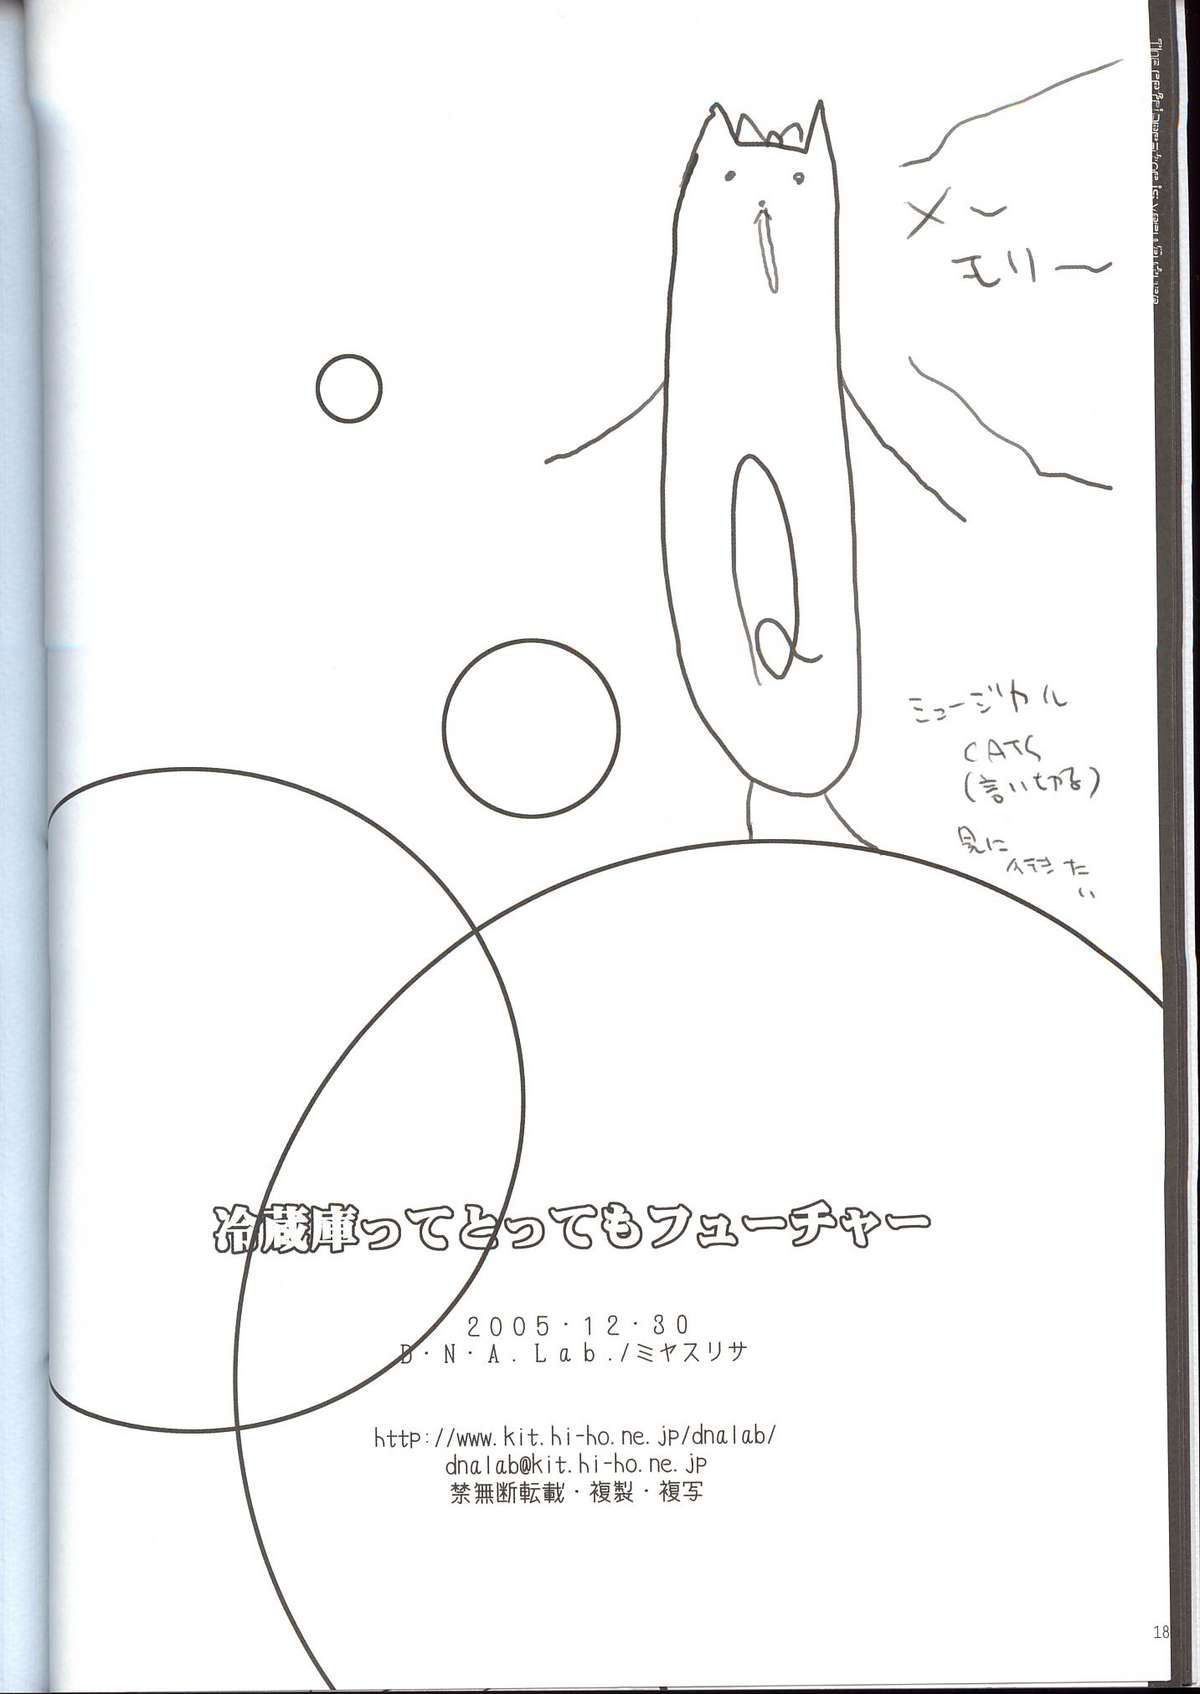 The refrigerator is very future
メ～
モリー
ミュージカル
CATS
(言い切る)
見に
行きた
い
冷蔵庫ってとってもフューチャー
2005・12・30
D・N・A.Lab./ミヤスリサ
http://www.kit.hi-ho.ne.jp/dnalab/
dnalab@kit.hi-ho.ne.jp
禁無断転載・複製・複写
18